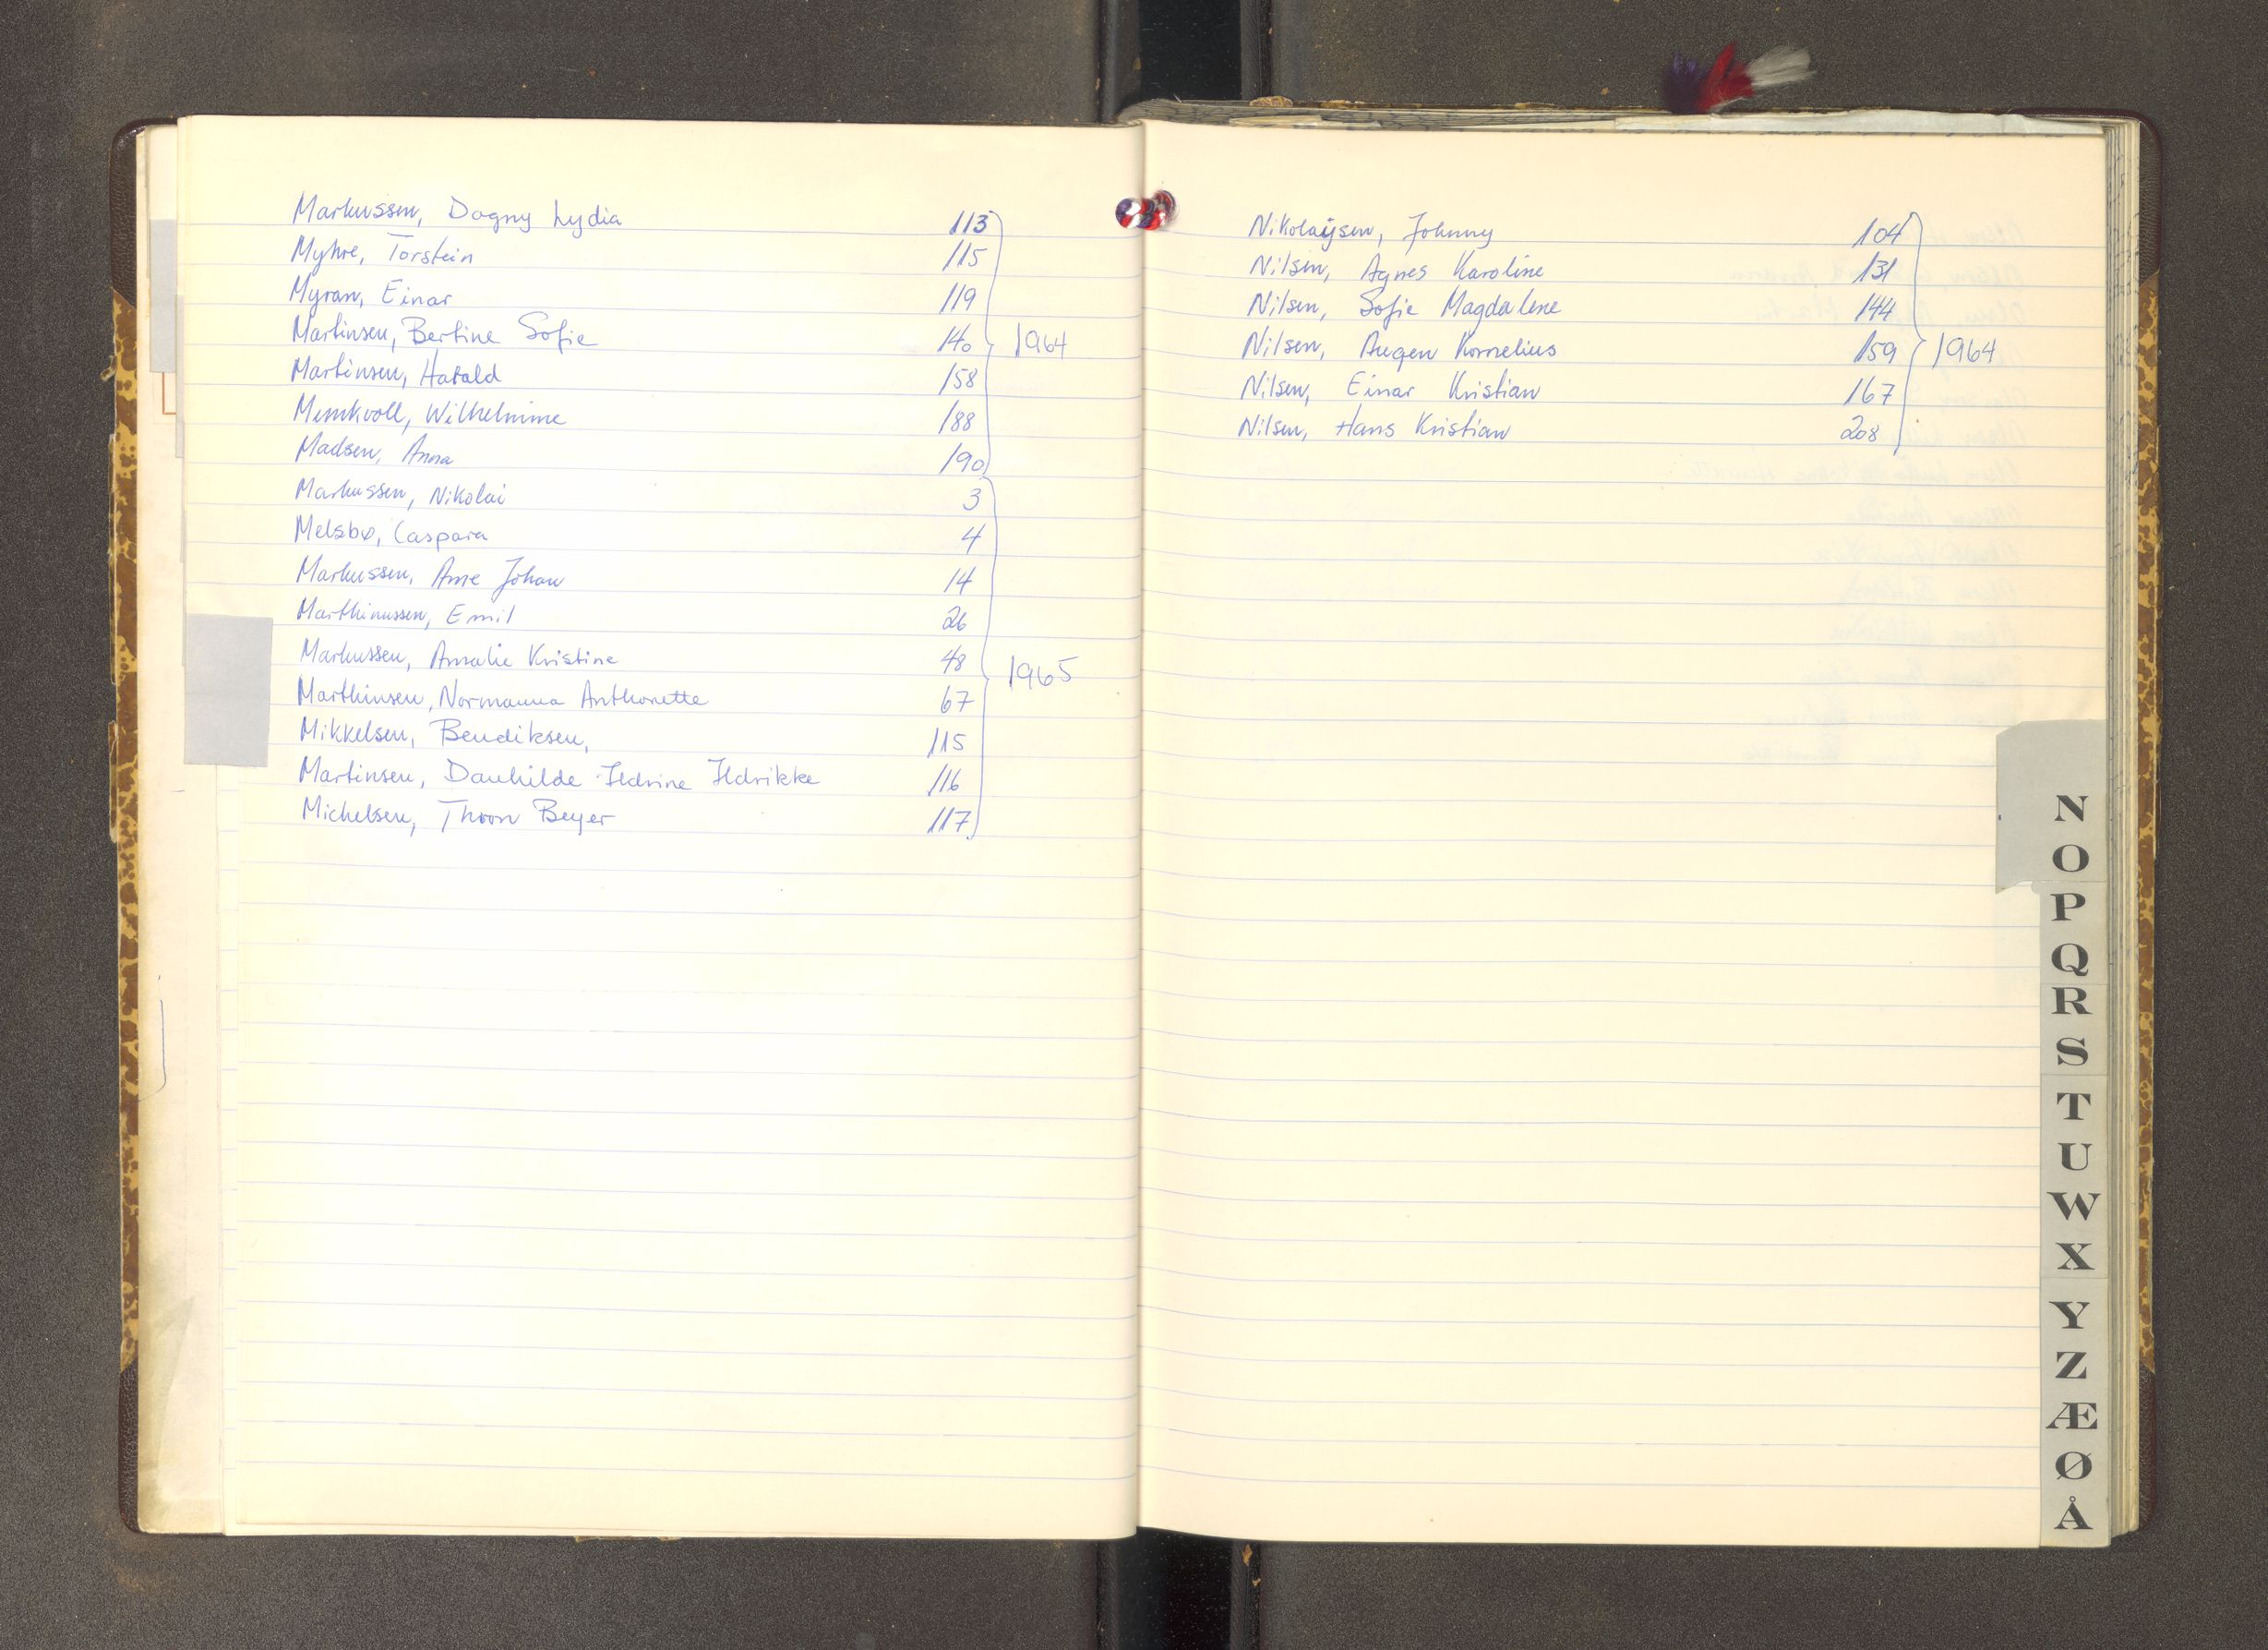 Markussen, Dagny Lydia 113
Myhre, Torstein 115
Myran, Einar 119
Martinsen, Bertine Sofie 140
Martinsen, Harald 158
Wilhelmine 188
Madsen, Anna 190
1964
Markussen, Nikolai 3
Melsbø, Caspara 4
Markussen, Arne Johan 14
Marthinussen, Emil 26
Markussen, Amalie Kristine 48
Marthinsen, Normanna Anthonette 67
Mikkelsen, Bendiksen, 115
Martinsen, Danhilde Ildrine Ildrikke 116
Michelsen, Thron Beyer 117
1965
Nikolaysen, Johnny 104
Nilsen, Agnes Karoline 131
Nilsen, Sofie Magdalene 144
Nilsen, Augen Kornelius 159
Nilsen, Einar Kristian 167
Nilsen, Hans Kristian 208
1964
N
O
P
Q
R
S
T
U
W
X
Y
Z
Æ
Ø
Å